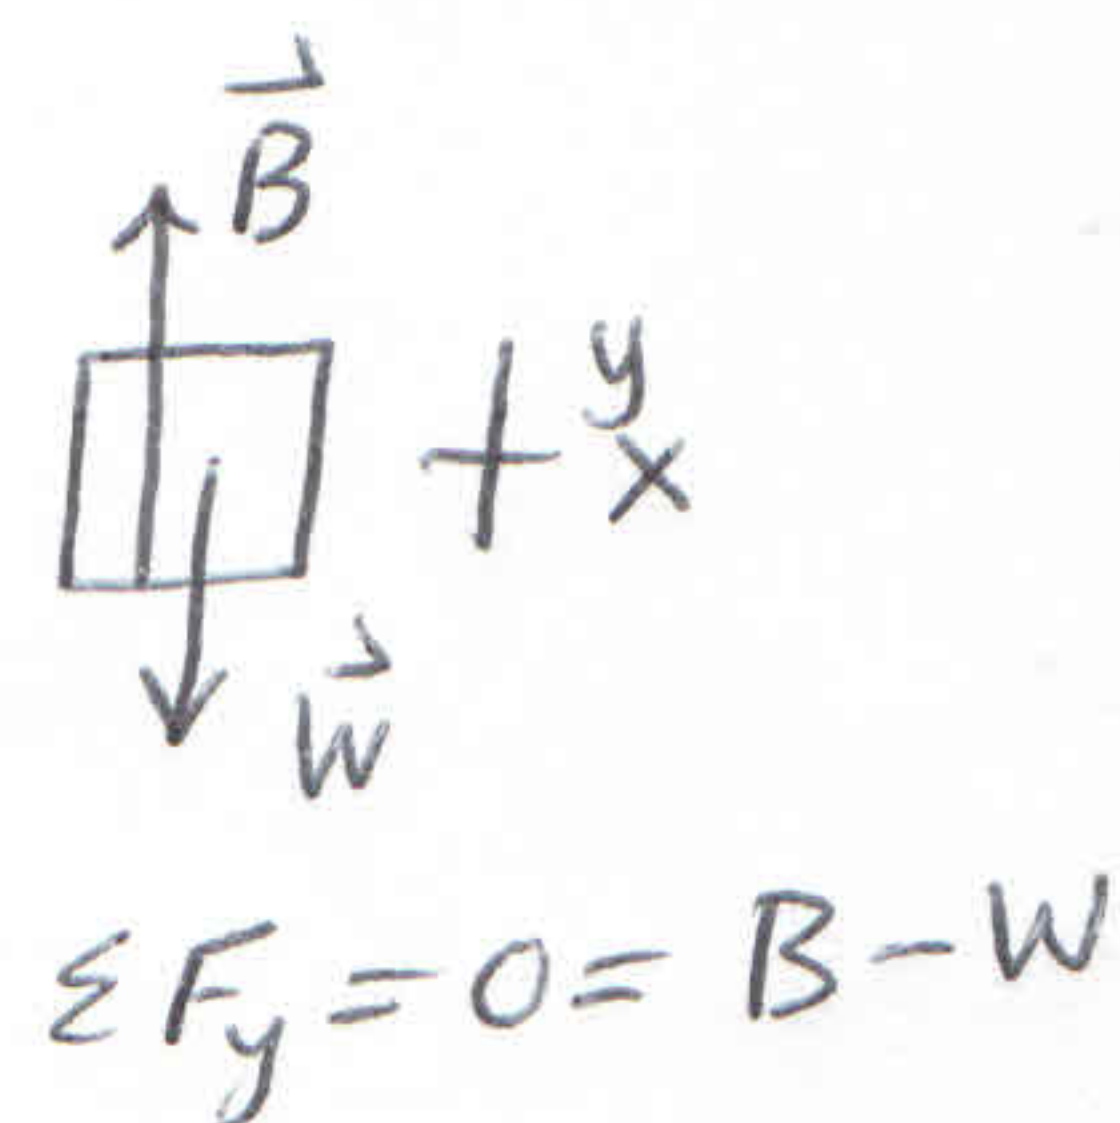 B⃗
y
x
W⃗
ΣF_y = 0 = B - W